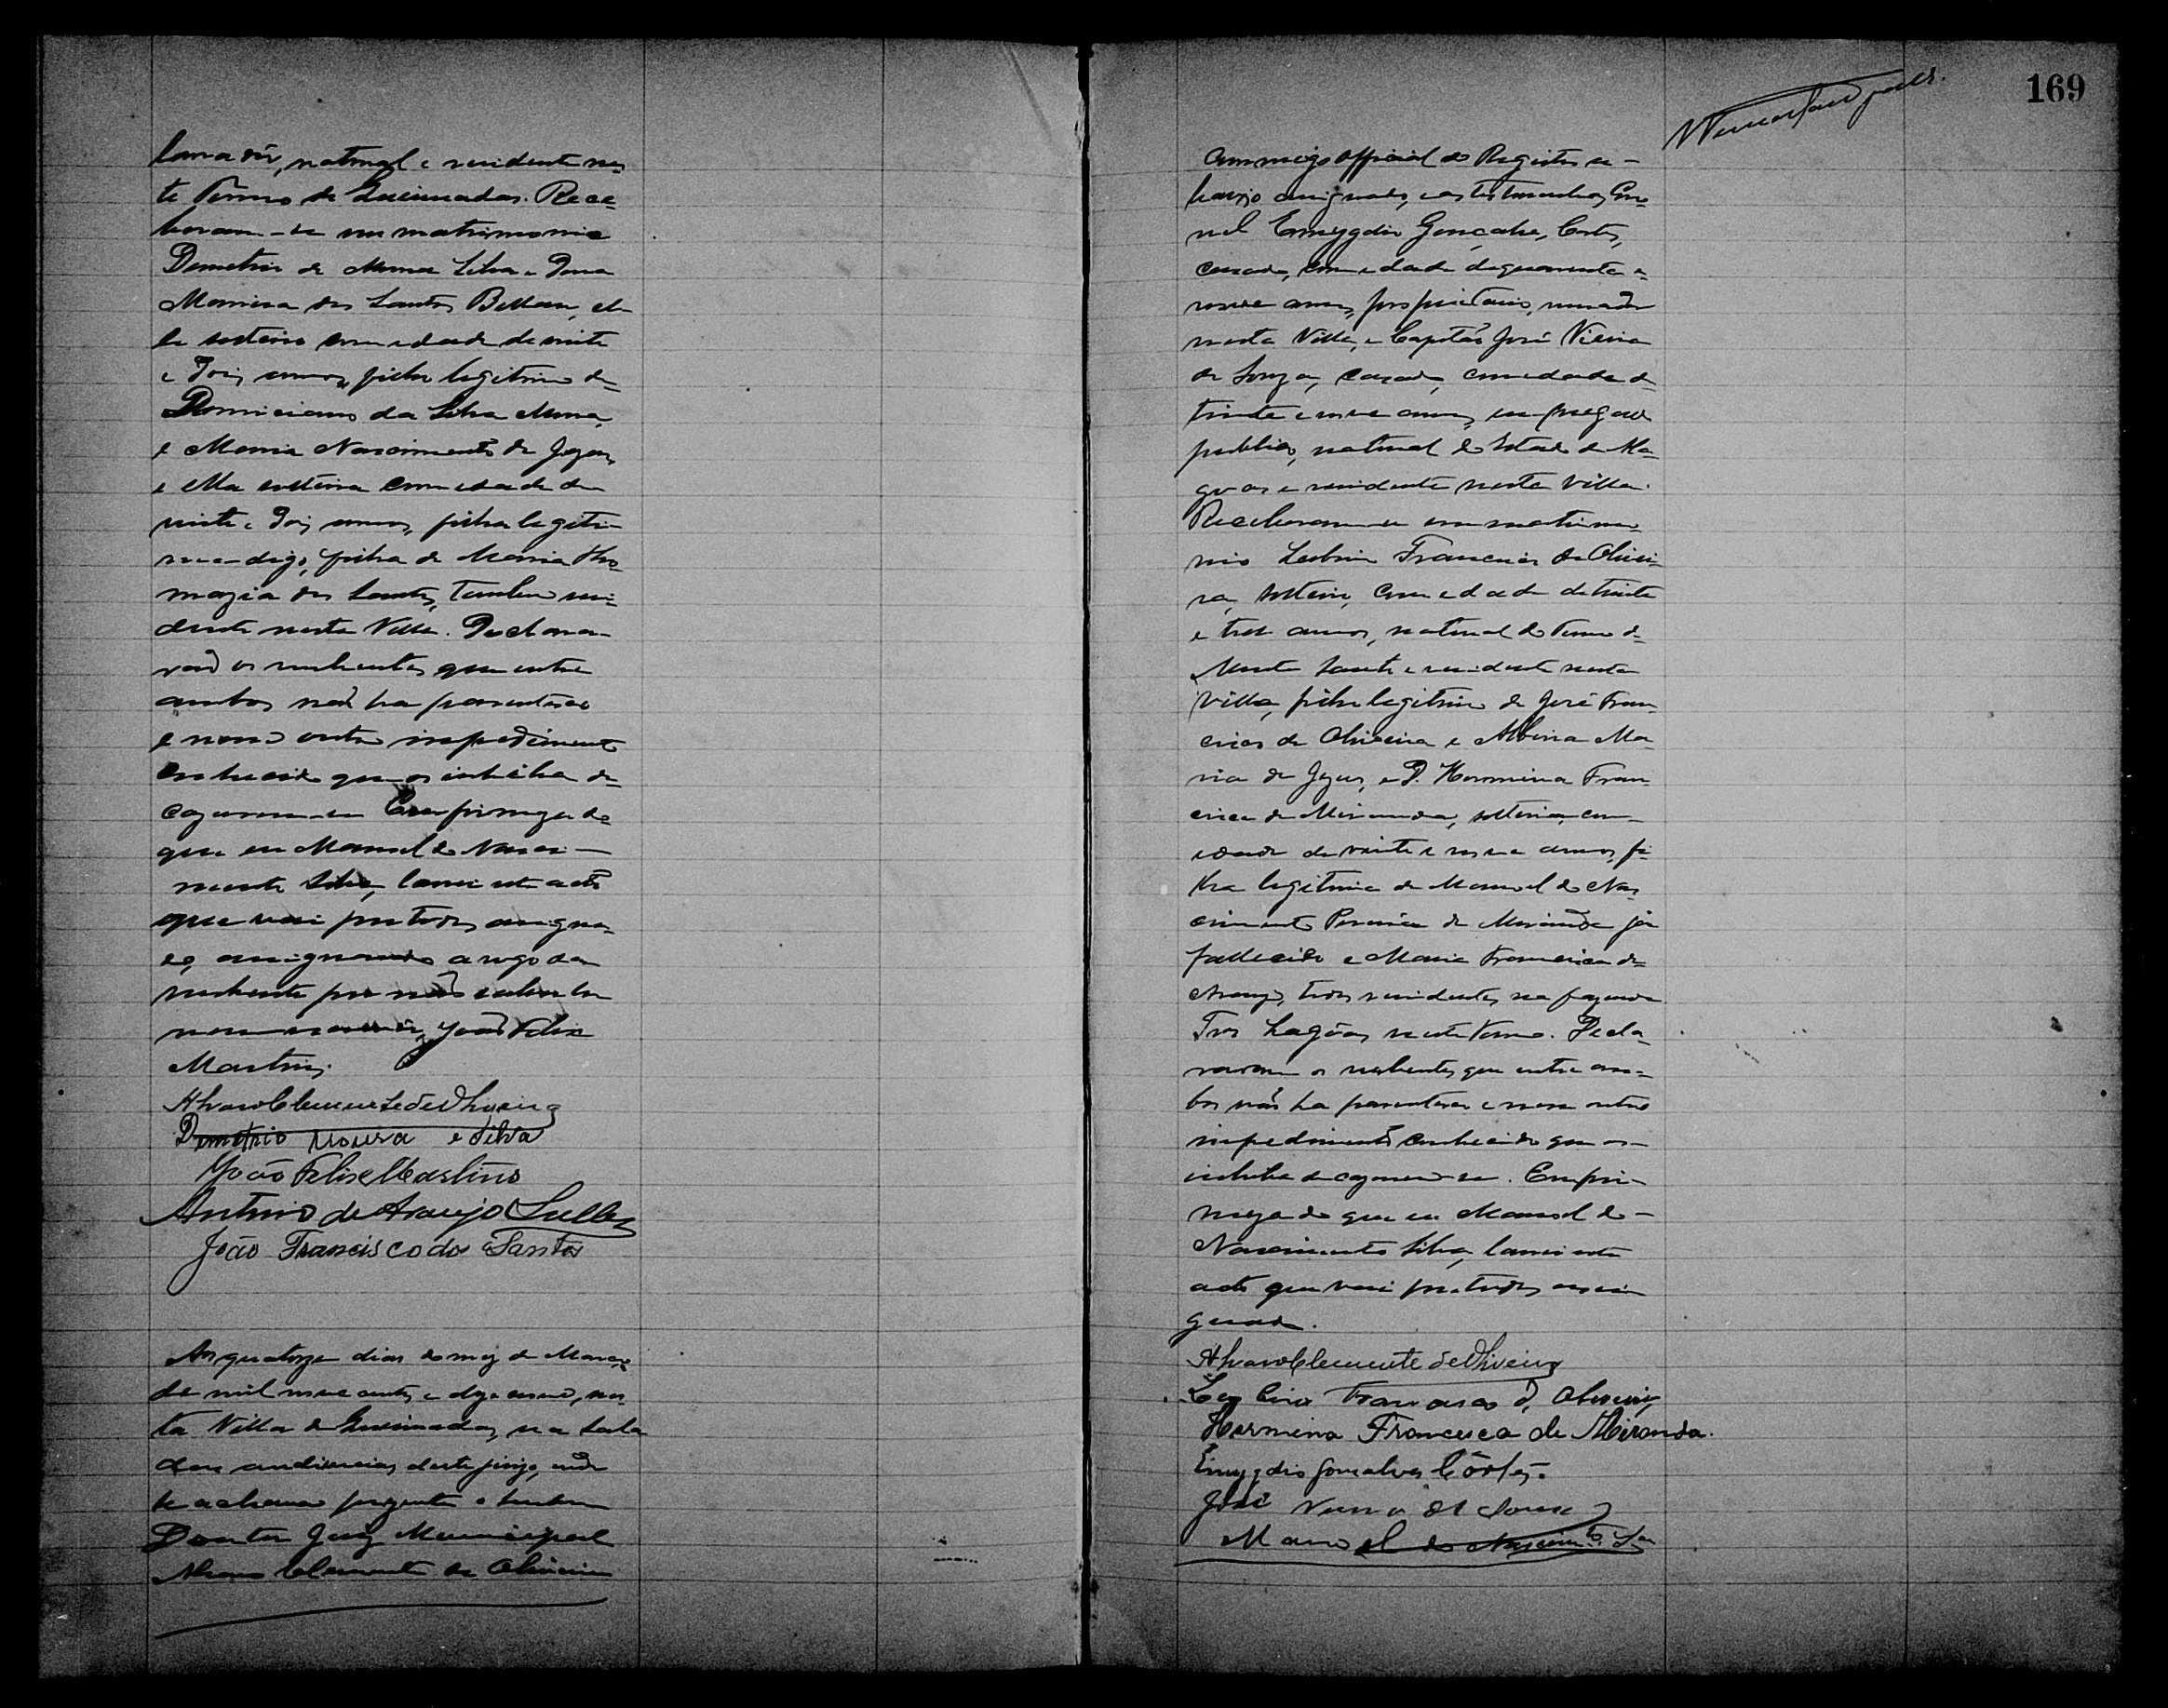 lavrador, natural e residente nes-
te Termo de Queimadas. Rece-
beram-se em matrimonio
Demetrio de Moura Silva e Dona
Maria dos Santos Bettan, el-
le solteiro com edade de vinte
e dois annos, filho legitimo de
Domiciano da Silva Moura,
e Maria Nascimento de Jezus,
e ella solteira com edade de
vinte e dois annos, filha legiti-
ma digo, filha de Maria Tho-
mazia dos Santos, tambem resi-
dente nesta Villa. Declara-
rão os nubentes que entre
ambos não ha parentesco
e nem outro impedimento
conhecido que os inhiba de
cazarem-se Em firmeza do
que eu Manoel do Nasci-
mento Silva, lavrei este acto
que vai por todos assigna-
do, assignando a rogo da
nubente por não saber ler
nem escrever, João Felix
Martins.
Alvaro Clemente de Oliveira
Demetrio Moura e Silva
João Felix Martins
Antonio de Araujo Salles
João Francisco dos Santos
Aos quatorze dias do mez de Março
de mil nove centos e dezenove, nes-
ta Villa de Queimadas, na sala
das audiencias deste juizo, onde
se achava prezente o
Doutor Juiz Municipal
Alvaro Clemente de Oliveira
169
commigo official do Registro a-
baixo assignado, e as testemunhas Coro-
nel Emygdio Gonçalves Cortes,
casado, com edade de quarenta e
nove annos, proprietario, morador
nesta Villa, e Capitão José Vieira
de Souza, casado, com edade de
trinta e nove annos, empregado
publico, natural do Estado de Ala-
goas e residente nesta Villa.
Receberam-se em matrimo-
nio Francisco de Olivei-
ra, solteiro, com edade de trinta
e tres annos, natural do Termo de
Monte Santo e residente nesta
Villa, filho legitimo de José Fran-
cisco de Oliveira e Albina Ma-
ria de Jezus, e D. Hermina Fran-
cisca de Miranda, solteira, com
edade de vinte e nove annos, fi-
lha legitima de Manoel do Nas-
cimento Pereira de Miranda já
fallecido e Maria Francisca de
Araujo, todos residentes na fazenda
Tres Lagôas neste Termo. Decla-
raram os nubentes que entre am-
bos não ha parentesco e nem outro
impedimento conhecido que os
inhiba de cazarem-se. Em fir-
meza do que eu Manoel do
Nascimento Silva, lavrei este
acto que vai por todos assi-
gnado.
Alvaro Clemente de Oliveira
Francisco d Oliveira
Hermina Francisca de Miranda.
Emygdio Gonsalves Côrtes.
José Vieira de Souza
Manoel do Nascimto Sa